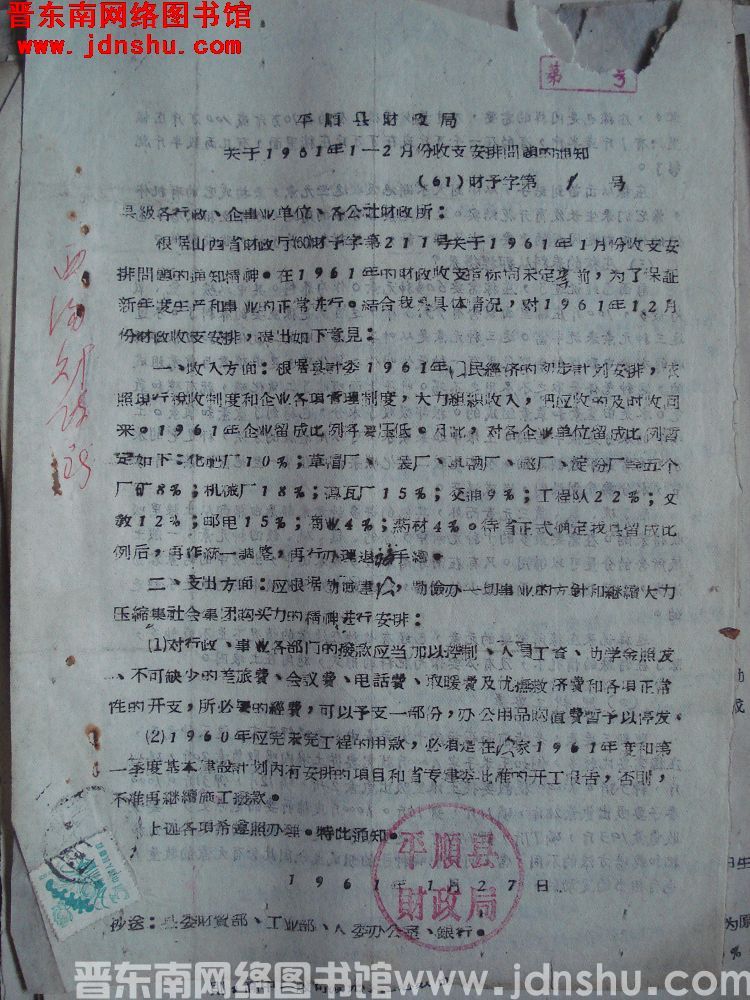 晋东南网络图书馆
www.jdnshu.com
第 号
平順县財政局
关于1961年1—2月份收支安排問題的通知
(61)財予字第 1 号
县級各行政、企事业单位、各公社財政所：
根据山西省財政厅(60)財予字第211号关于1961年1月份收支安
排問題的通知精神。在1961年的財政收支指标尚未定案前，为了保証
新年度生产和事业的正常进行。結合我县具体情况，对1961年1.2月
份財政收支安排，提出如下意見：
一、收入方面：根据县計委1961年 民經济的初步計划安排，
照現行税收制度和企业各項管理制度，大力組織收入，把应收的及时收回
来。1961年企业留成比例华要压低。因此，对各企业单位留成比例暫
定如下：化肥厂10%；草帽厂、 装厂、 厂、 厂、淀粉厂等五个
厂矿8%；机械厂18%； 瓦厂15%；交通9%；工程队22%；文
教12%；邮电15%；商业4%；药材4%。待省正式确定我县留成比
例后，再作統一調整，再行办理退补手續。
二、支出方面：应根据勤儉建 ，勤儉办一切事业的方針和継續大力
压縮集社会集团购买力的精神进行安排：
(1)对行政、事业各部門的撥款应当加以控制、人員工資、助学金照发
、不可缺少的差旅費、会议費、电話費、取暖費及优撫救济費和各項正常
性的开支，所必要的經費，可以予支一部份，办公用品购置費暫予以停发。
(2)1960年应完未完工程的用款，必須是在 家1961年度和第
一季度基本建設計划内有安排的項目和省专建委批准的开工报告，否則，
不准再継續施工撥款。
上述各項希遵照办理。特此通知。
平順县
財政局
1961年1月27日
抄送：县委財貿部、工业部、人委办公室、銀行。
晋东南网络图书馆 www.jdnshu.com